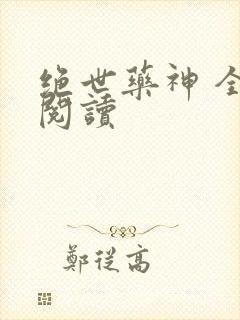 绝世藥神 全
閱讀
鄭從高